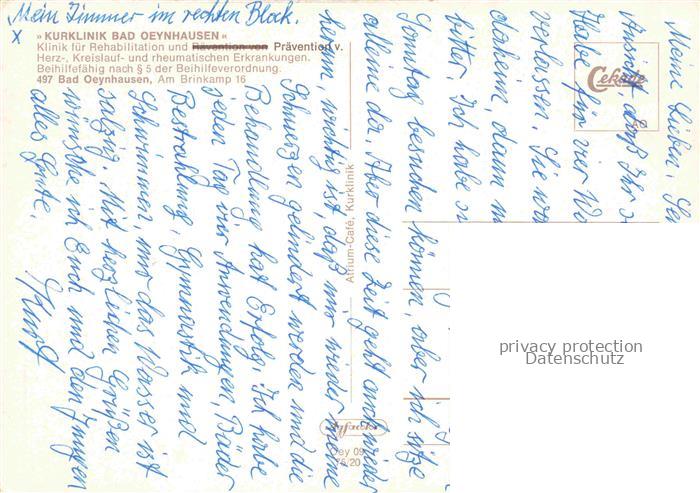 Mein Zimmer im rechten Block.
X
» KURKLINIK BAD OEYNHAUSEN «
Klinik für Rehabilitation und Rävention von Prävention v.
Herz-, Kreislauf- und rheumatischen Erkrankungen.
Beihilfefähig nach § 5 der Beihilfeverordnung.
497 Bad Oeynhausen, Am Brinkamp 16
Meine Lieben,
Ansicht daß Ihr
Habe für vier Wo
verlassen. Sie wa
daheim, darum m
bitter. Ich habe
Sonntag besuchen können, aber ich sitze
alleine da. Aber diese Zeit geht auch wieder
herum, wichtig ist, daß mir wieder meine
Schmerzen gelindert werden und die
Behandlung hat Erfolg. Ich habe
jeden Tag vier Anwendungen, Bäder
Bestrahlung, Gymnastik und
Schwimmen, nur das Wasser ist
salzig. Mit herzlichen Grüßen
wünsche ich Euch und den Jungen
alles Gute.
Cekade
AØ
Atrium-Café, Kurklinik
Oey 09
76/20
privacy protection
Datenschutz